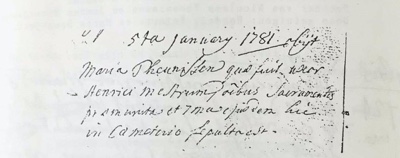 5ta January 1781 obijt
Maria Theunissen quæ fuit uxor
Henrici Mestrum omnibus Sacramentis
præmunita et 7ma ejusdem hic
in Cœmeterio sepulta est.